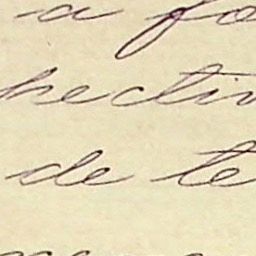 a fo
hectiv
de te